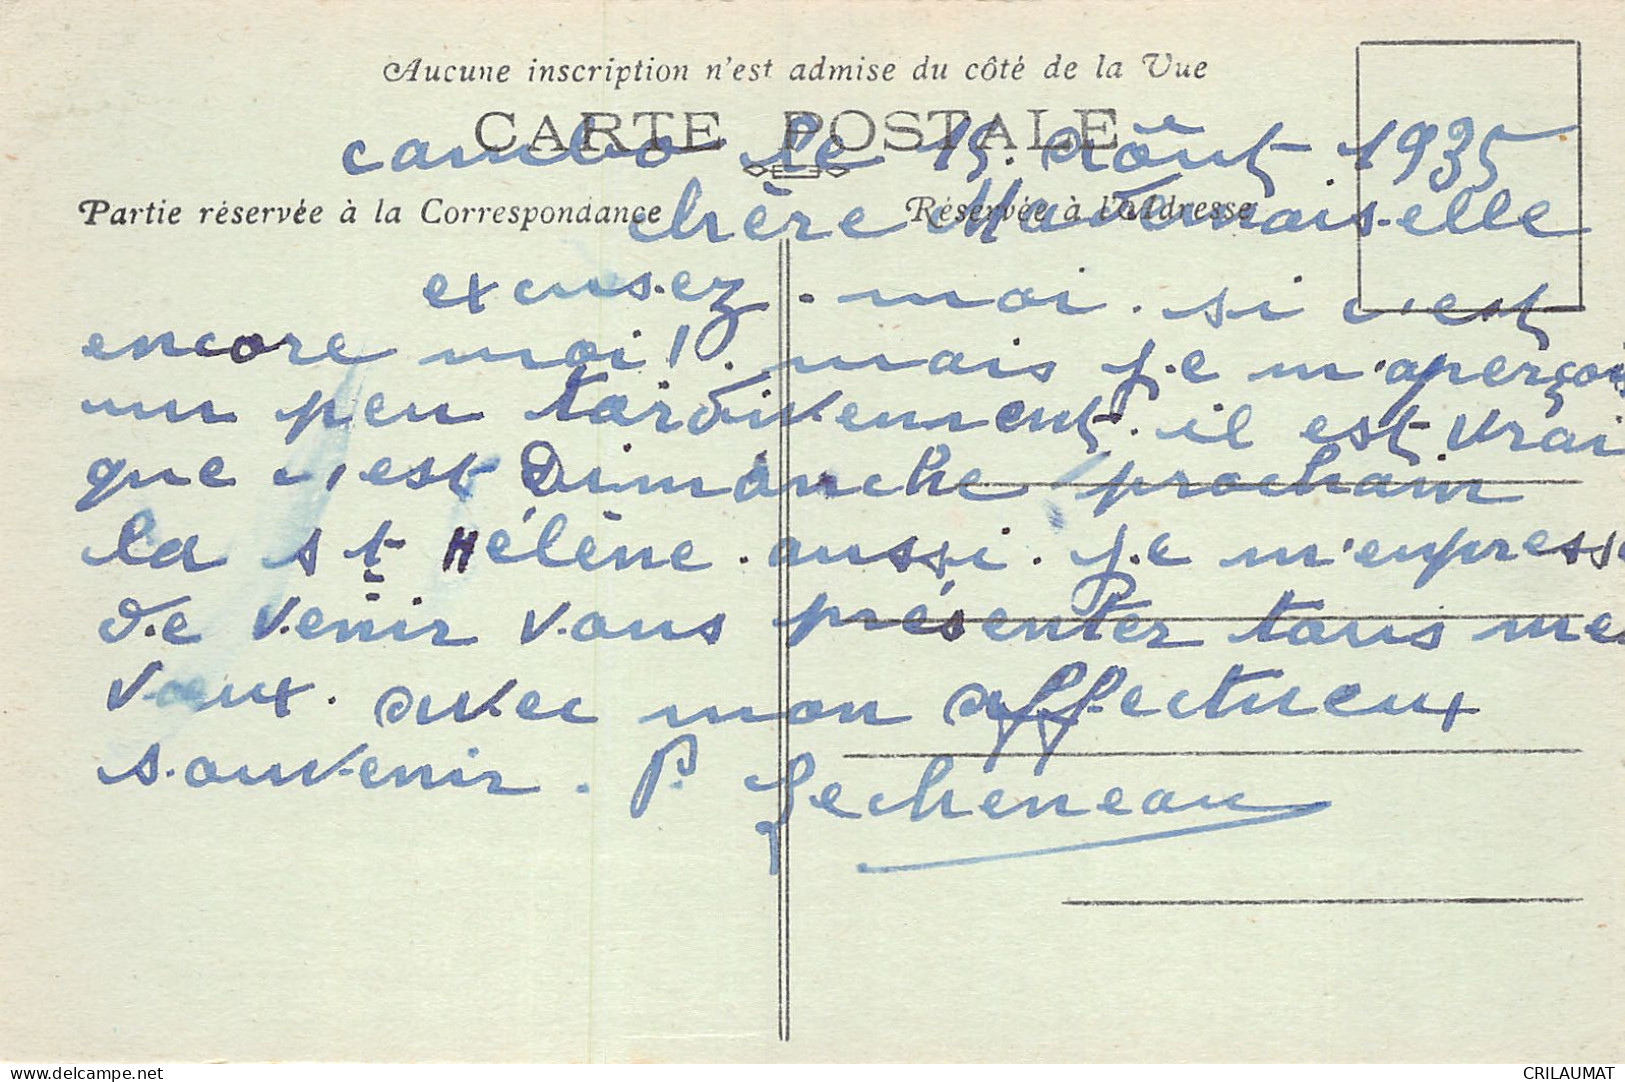 Aucune inscription n'est admise du côté de la Vue
CARTE POSTALE
cambo le 15. Aôut 1935
Partie réservée à la Correspondance
Réservée à l'Adresse
chère Mademoiselle
excusez-moi. si c'est
encore moi!. mais je m'aperçois
un peu tardivement. il est vrai
que c'est Dimanche prochain
la st Hélène. aussi. je m'empresse
de venir vous présenter tous mes
vœux. avec mon affectueux
souvenir. P. Lecheneau
delcampe.net
CRILAUMAT